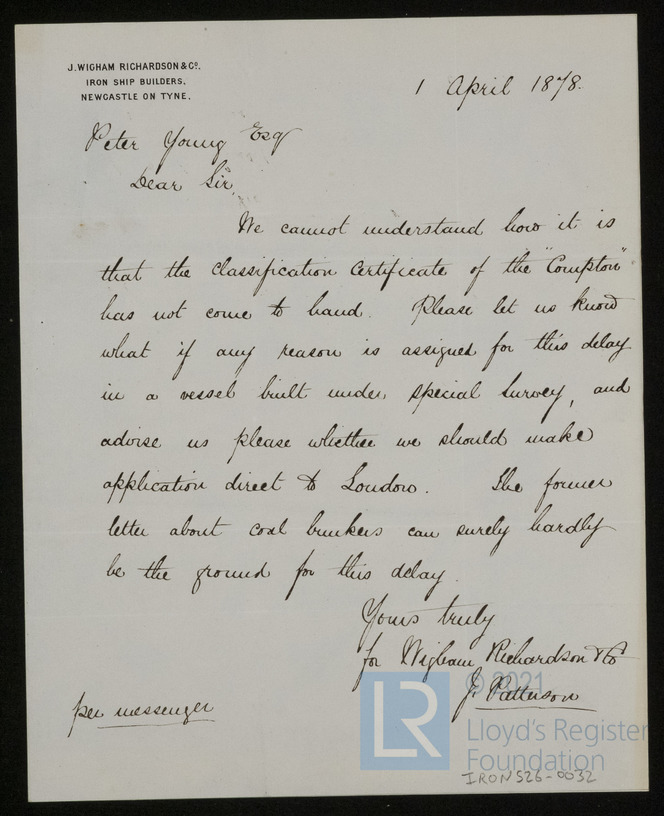 J. WIGHAM RICHARDSON & Co.
IRON SHIP BUILDERS.
NEWCASTLE ON TYNE.
1 April 1878.
Peter Young Esqr
Dear Sir,
We cannot understand how it is
that the Classification Certificate of the "Compton"
has not come to hand. Please let us know
what if any reason is assigned for this delay
in a vessel built under special Survey, and
advise us please whether we should make
application direct to London. The former
letter about coal bunkers can surely hardly
be the ground for this delay.
Yours truly
for Wigham Richardson & Co
J. Patterson
per messenger
© 2021
LR
Lloyd's Register
Foundation
IRON526-0032